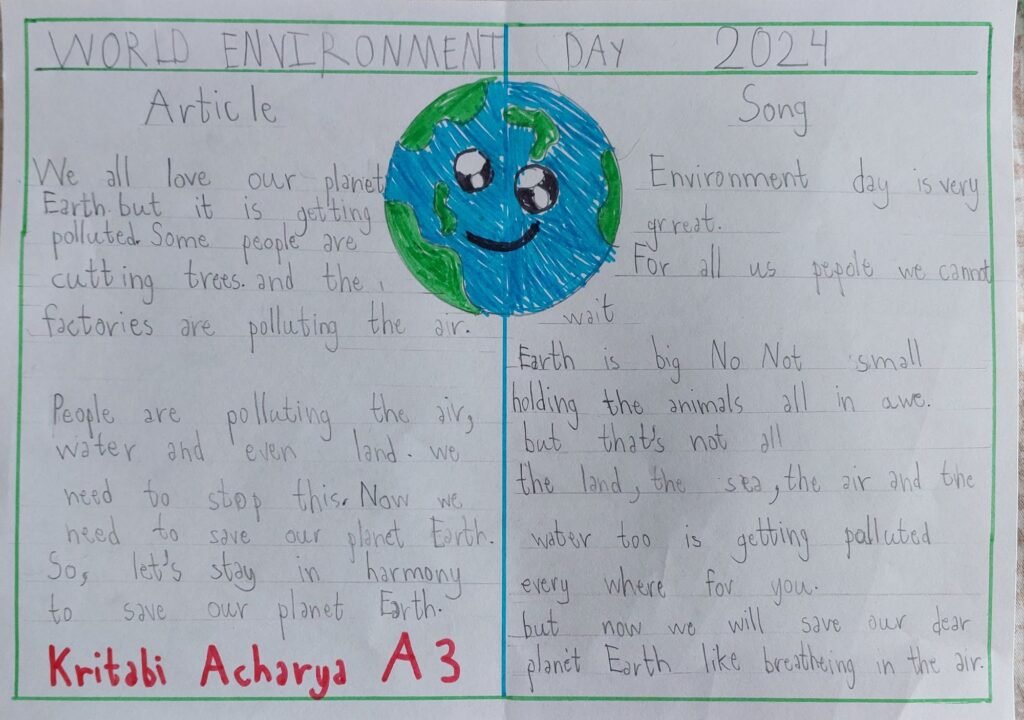 WORLD ENVIRONMENT DAY 2024
Article
We all love our planet
Earth. but it is getting
polluted. Some people are
cutting trees. and the
factories are polluting the air.
People are polluting the air,
water and even land. we
need to stop this. Now we
need to save our planet Earth.
So, let's stay in harmony
to save our planet Earth.
Kritabi Acharya A3
Song
Environment day is very
grreat.
For all us pepole we cannot
wait
Earth is big No Not small
holding the animals all in awe.
but that's not all
the land, the sea, the air and the
water too is getting polluted
every where for you.
but now we will save our dear
planet Earth like breatheing in the air.